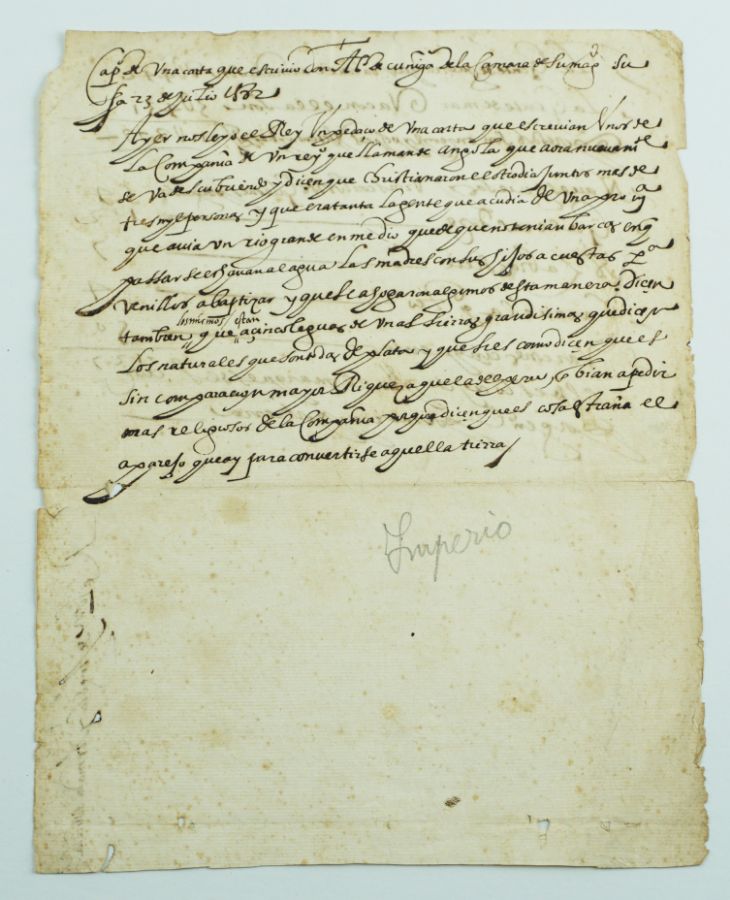 Cap.º de Una carta que escrivio Don Al.º de cuñiga de la Camara de su mag.d su
fha 23 de Julio 1582
Ayer nos leyo el Rey Un pedaço de Una carta que escrevian Unos de
la Compañia de Un rey que llaman de Angola que aora nuevam.te
se va descubriendo y dicen que christianaron el otro dia juntos mas de
tres myl personas y que era tanta la gente que acudia de Una pro
que avia Un rio grande en medio que de que no tenian barcos en q
passar se echavan al agua las madres con sus hijos a cuestas p.a
venillos a baptizar y que se ahogaron algunos desta manera. Dicen
los mismos estan
tambien que a cinco leguas de Unas sierras grandisimas que dicen
los naturales que son todas de plata y que si es como dicen que es
sin comparacion mayor Riqueza que la del peru enbian a pedir
mas religiosos de la Compañia porque dicen que es cosa estraña el
aparejo que ay para convertirse aquella tierra
Imperio